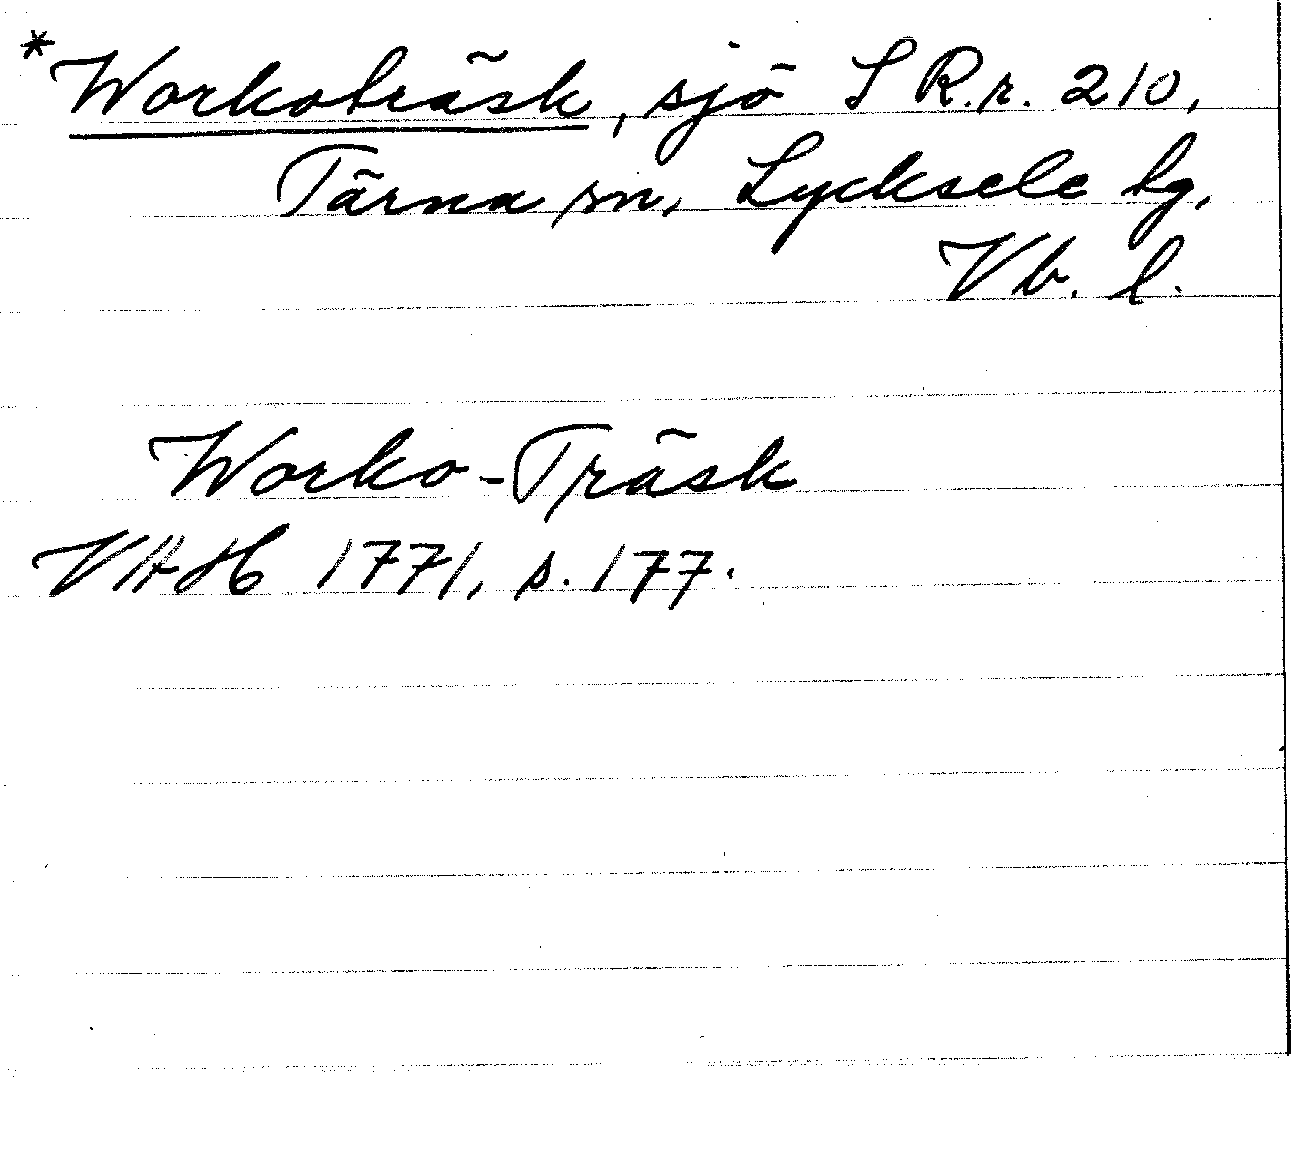 *Workoträsk, sjö S R.r. 210,
Tärna sn, Lycksele lg,
Vb. l.
Worko-Träsk
VHH 1771, s. 177.